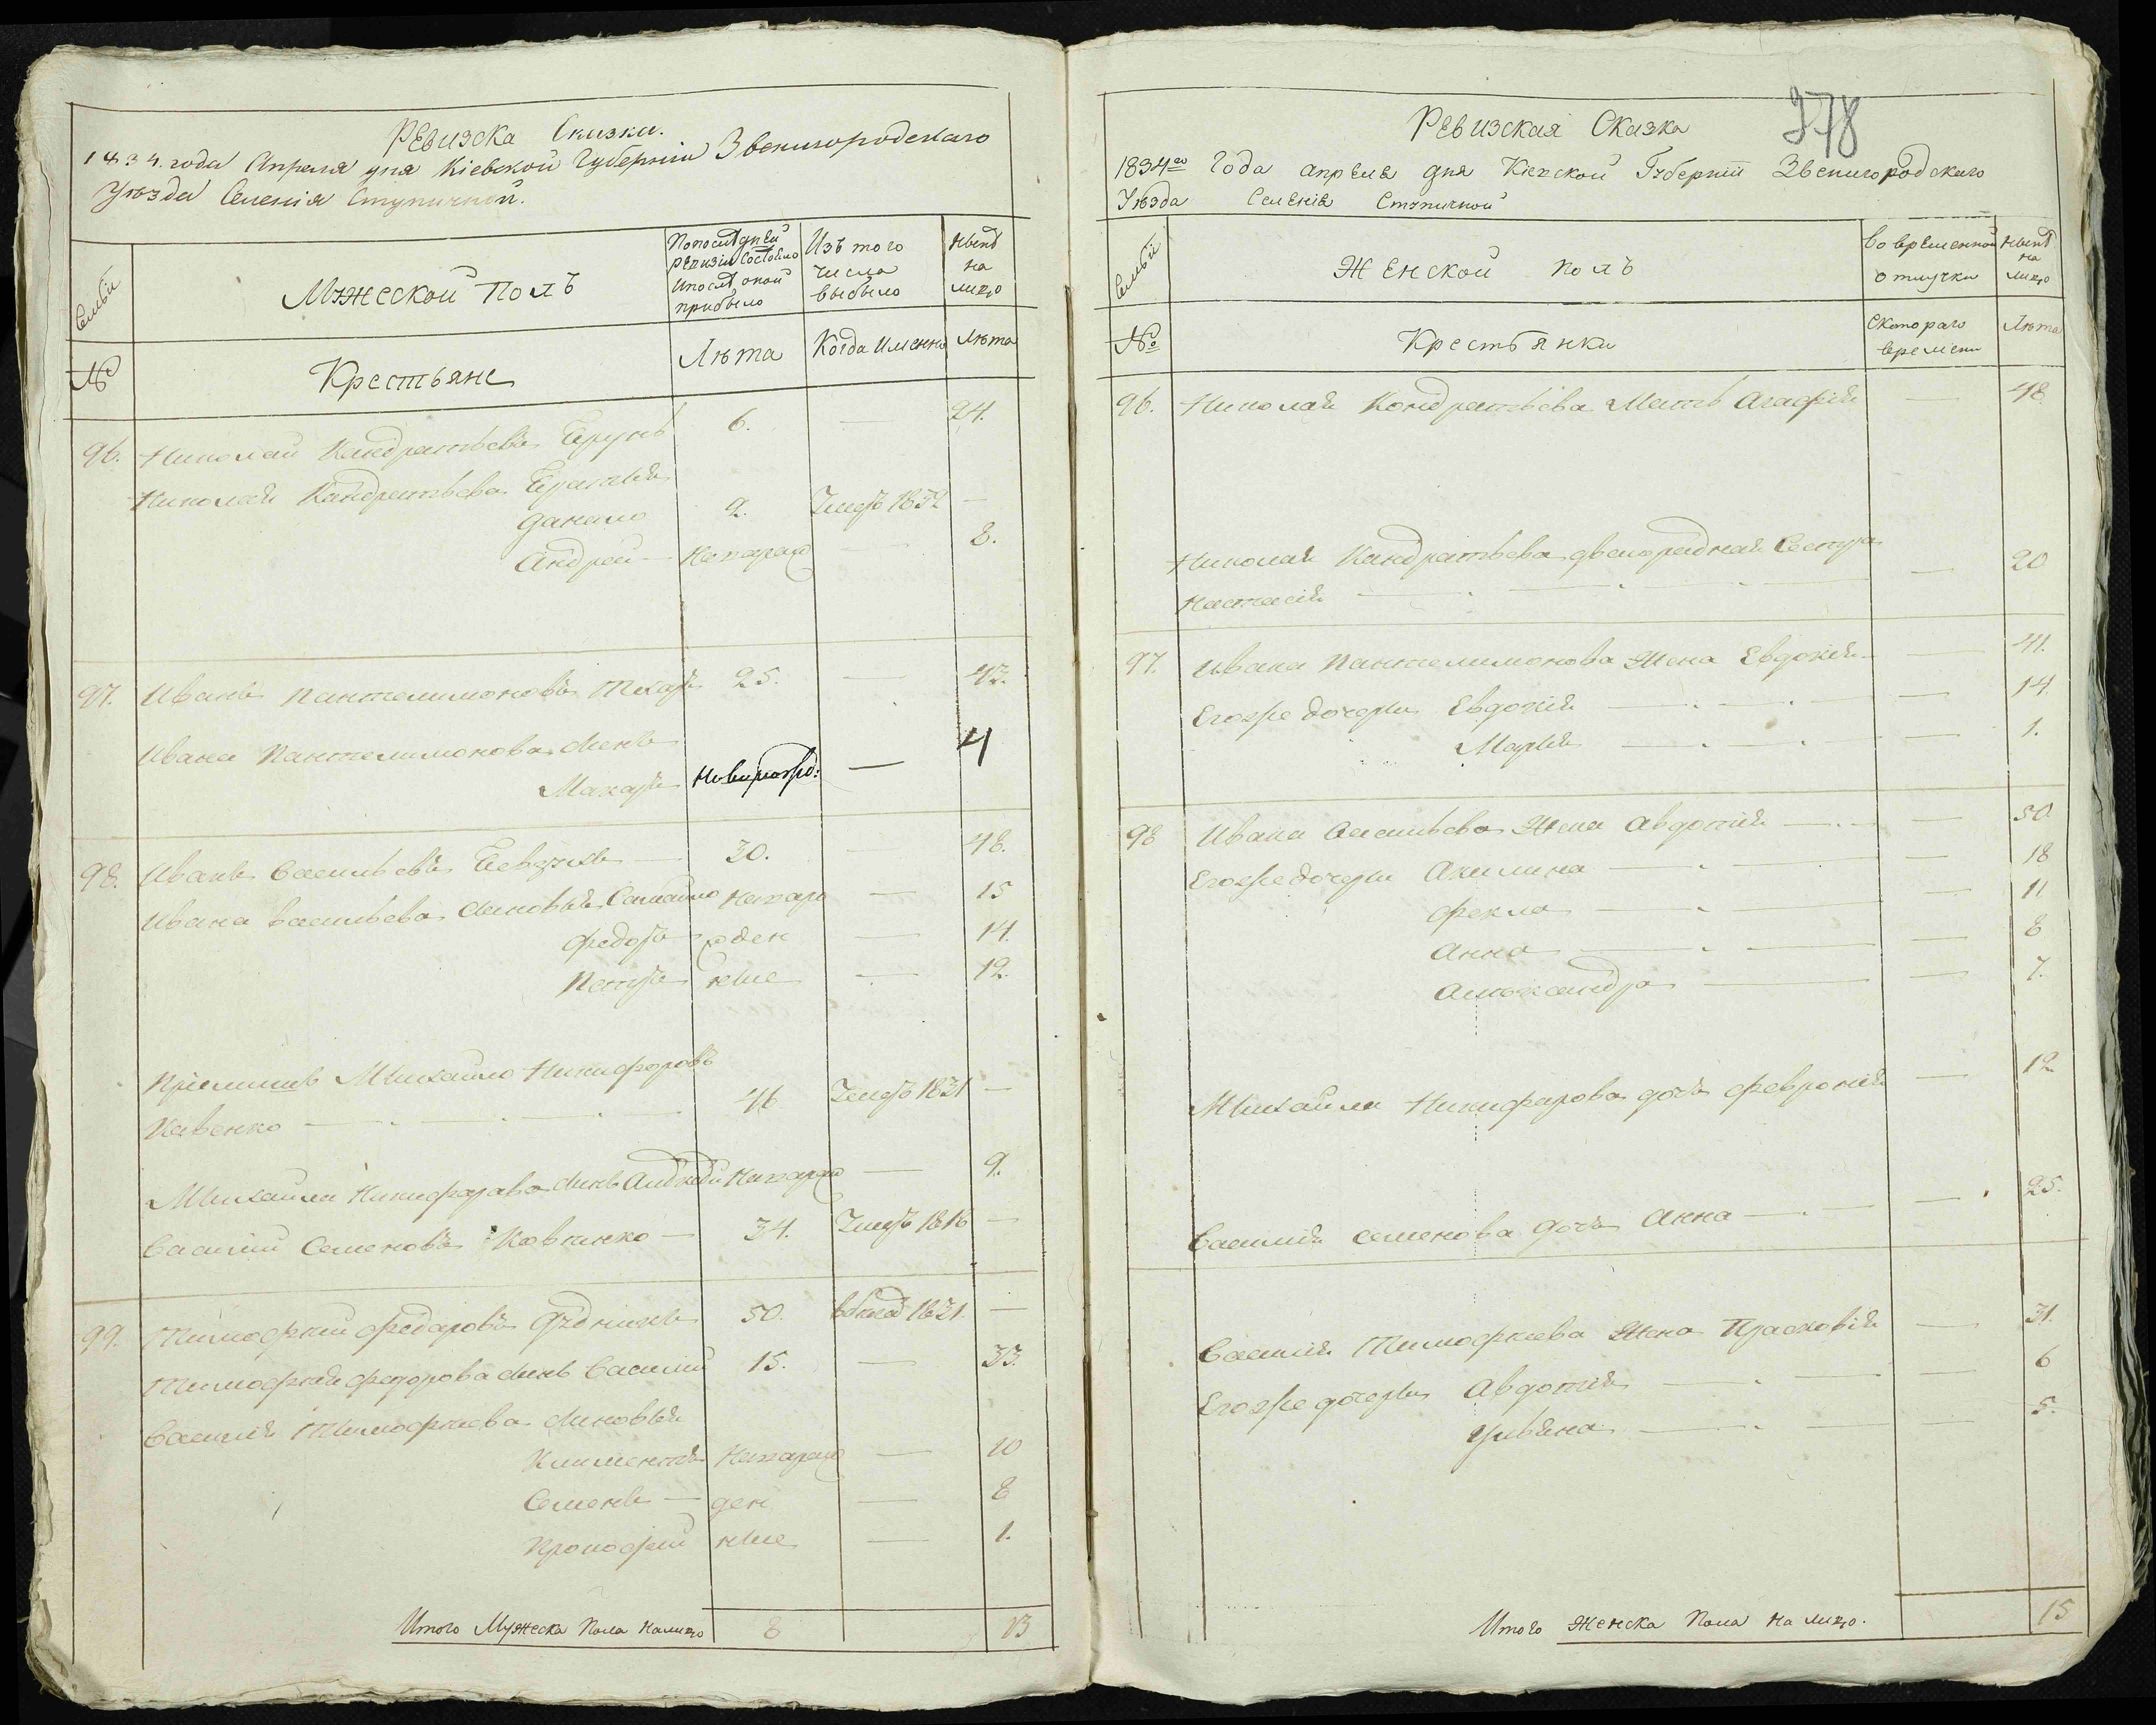 Ревизска Сказки.
1834. года Апреля дня Кіевской Губерніи Звенигородскаго
Уѣзда Селенія Ступичной.
Семьи
Мужеской Полъ
По послѣдней ревизіи состояло и послѣ оной прибыло
Изъ того числа выбыло
Нынѣ на лицо
№
Крестьяне
Лѣта
Когда Именно
Лѣта
96. Николай Кандратьевъ 6. — 24.
Николая Кандратьева
Данило 9. Умеръ 1832 —
Андрей — 8.
97. Иванъ Пантелимоновъ 25. — 43.
Ивана Пантелимонова сынъ
Макаръ новорожд: — 4
98. Иванъ Васильевъ — 30. — 48.
Ивана Васильева сыновья — 15
Федоръ — 14.
Петръ — 12.
Пріемышъ Михайло Никифоровъ
— 46 Умеръ 1831 —
Михайла Никифорова сынъ Андрей — 9.
Василий Семеновъ — 34. Умеръ 1816 —
99. Тимофей Федоровъ 50. 1831 —
Тимофея Федорова сынъ Василий 15. — 33.
Василия Тимофеева сыновья
Климентъ — 10
Семенъ — — 8
Прокофий — 1.
Итого Мужеска Пола Налицо 8 13
378
Ревизская Сказка
1834го Года апреля дня Кіевской Губерніи Звенигородскаго
Уѣзда Селенія Ступичной
Семьи
Женской полъ
Во временной отлучки
Нынѣ на лицо
№
Крестьянки
Съ котораго времени
Лѣта
96. Николая Кондратьева Мать Агафія — 48
Николая Кандратьева двоюродная Сестра
Настасія — 20
97. Ивана Пантелимонова Жена Евдокія — 41.
Егоже дочери Евдокія — 14.
Марія — 1.
98 Ивана Васильева Жена Авдотия — 50
Егоже дочери Акилина — 18
Фекла — 11
Анна — 8
Александра — 7.
Михайла Никифорова дочь Феврония — 12
Василия Семенова дочь Анна — 25.
Василия Тимофеева Жена Прасковия — 31.
Егоже дочери Авдотия — 6
Ульяна — 5.
Итого Женска Пола на лицо. 15